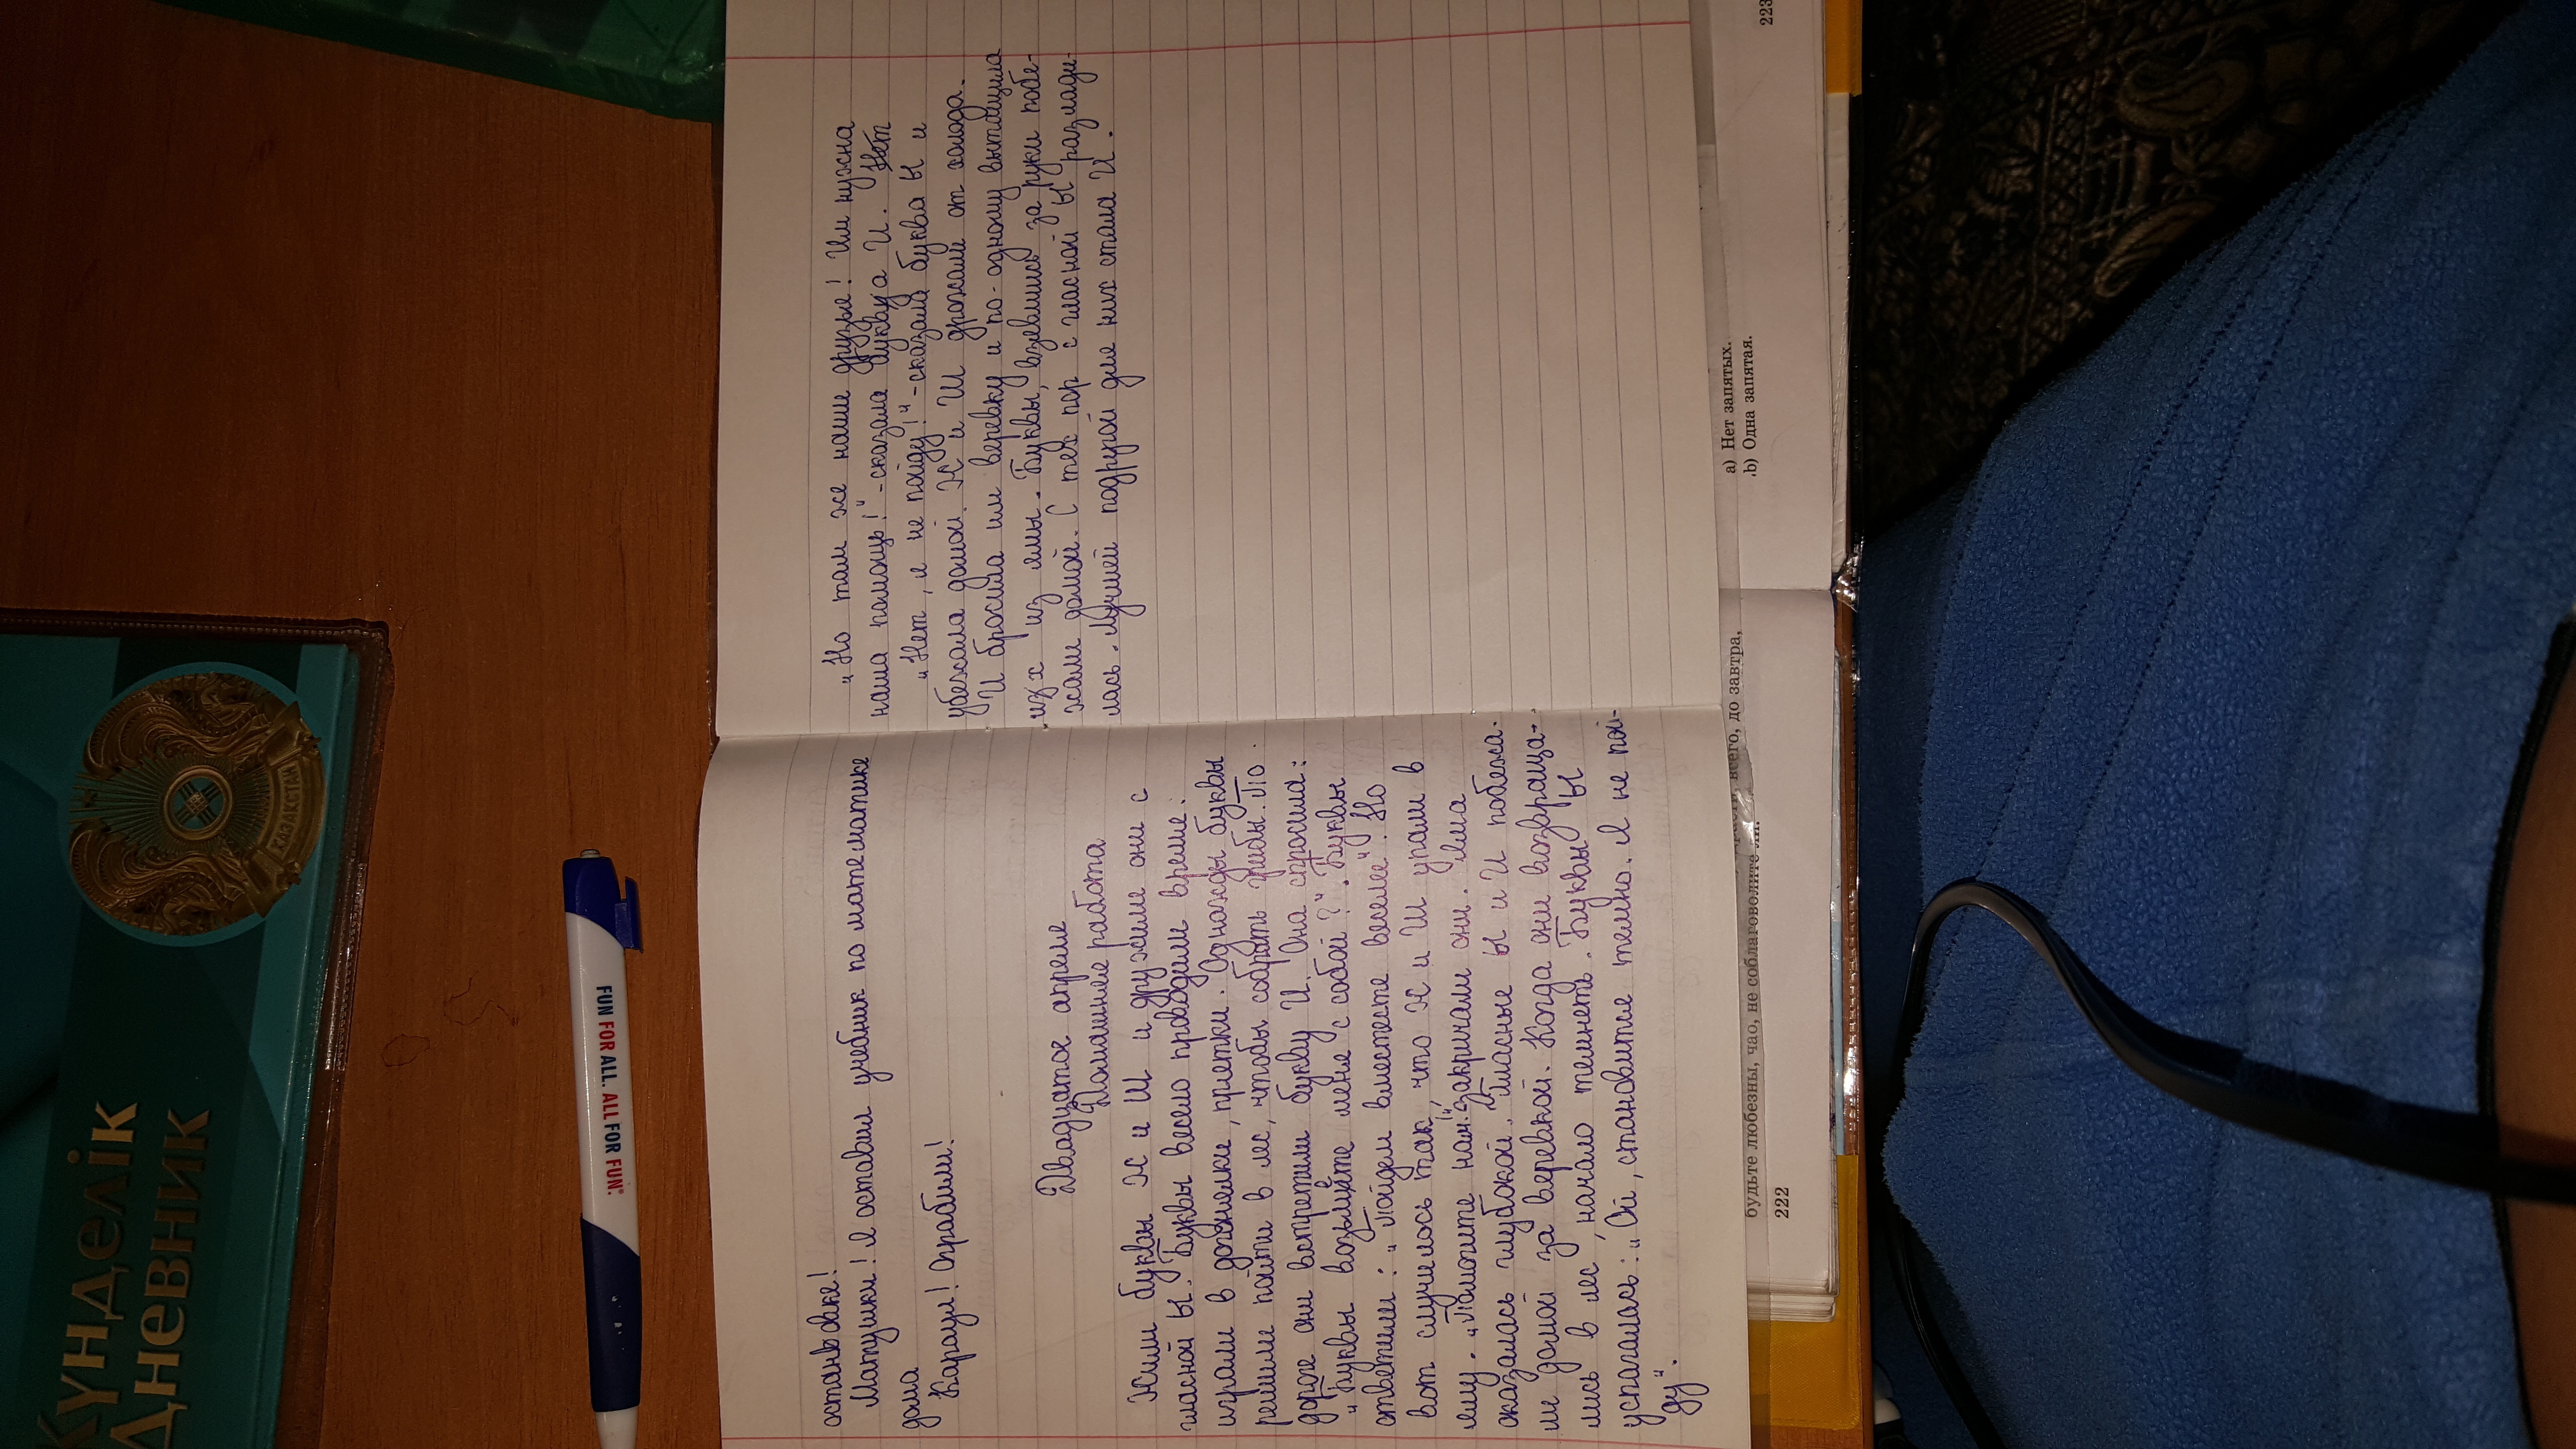 КҮНДЕЛІК
ДНЕВНИК
ҚАЗАҚСТАН
FUN FOR ALL. ALL FOR FUN.
остановке!
Матушки! Я оставил учебник по математике
дома
Караул! Ограбили!
Двадцатое апреля
Домашняя работа
Жили буквы Ж и Ш и дружили они с
гласной Ы. Буквы весело проводили время:
играли в догонялки, прятки. Однажды буквы
решили пойти в лес, чтобы собрать грибы. По
дороге они встретили букву И. Она спросила:
„Буквы возьмёте меня с собой?". Буквы
ответили: „Пойдем вместе веселее". Но
вот случилось так, что Ж и Ш упали в
яму. „Помогите нам!",-закричали они. Яма
оказалась глубокой. Гласные Ы и И побежа-
ли домой за веревкой. Когда они возвраща-
лись в лес, начало темнеть. Буквы Ы
испугалась: „Ой, становится темно. Я не пой-
ду".
„Но там же наши друзья! Им нужна
наша помощь!"-сказала буква И. Нет
„Нет, я не пойду!"-сказала буква Ы и
убежала домой. Ж и Ш дрожали от холода.
И бросила им веревку и по-одному вытащила
их из ямы. Буквы, взявшись за руки побе-
жали домой. С тех пор с гласной Ы разлади-
лась. Лучшей подругой для них стала И.
будьте любезны, чао, не соблаговолите ли.
всего, до завтра,
222
a) Нет запятых.
b) Одна запятая.
223